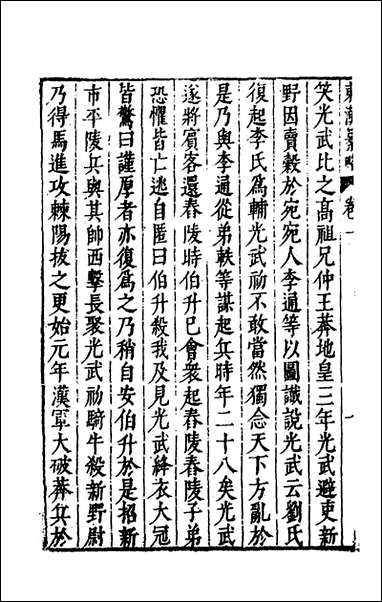 東漢纂略 卷一 一
笑光武比之高祖兄仲王莽地皇三年光武避吏新
野因賣穀於宛宛人李通等以圖讖說光武云劉氏
復起李氏爲輔光武初不敢當然獨念天下方亂於
是乃與李通從弟軼等謀起兵時年二十八矣光武
遂將賓客還舂陵時伯升已會衆起舂陵舂陵子弟
恐懼皆亡逃自匿曰伯升殺我及見光武絳衣大冠
皆驚曰謹厚者亦復爲之乃稍自安伯升於是招新
市平陵兵與其帥西擊長聚光武初騎牛殺新野尉
乃得馬進攻棘陽拔之更始元年漢軍大破莽兵於